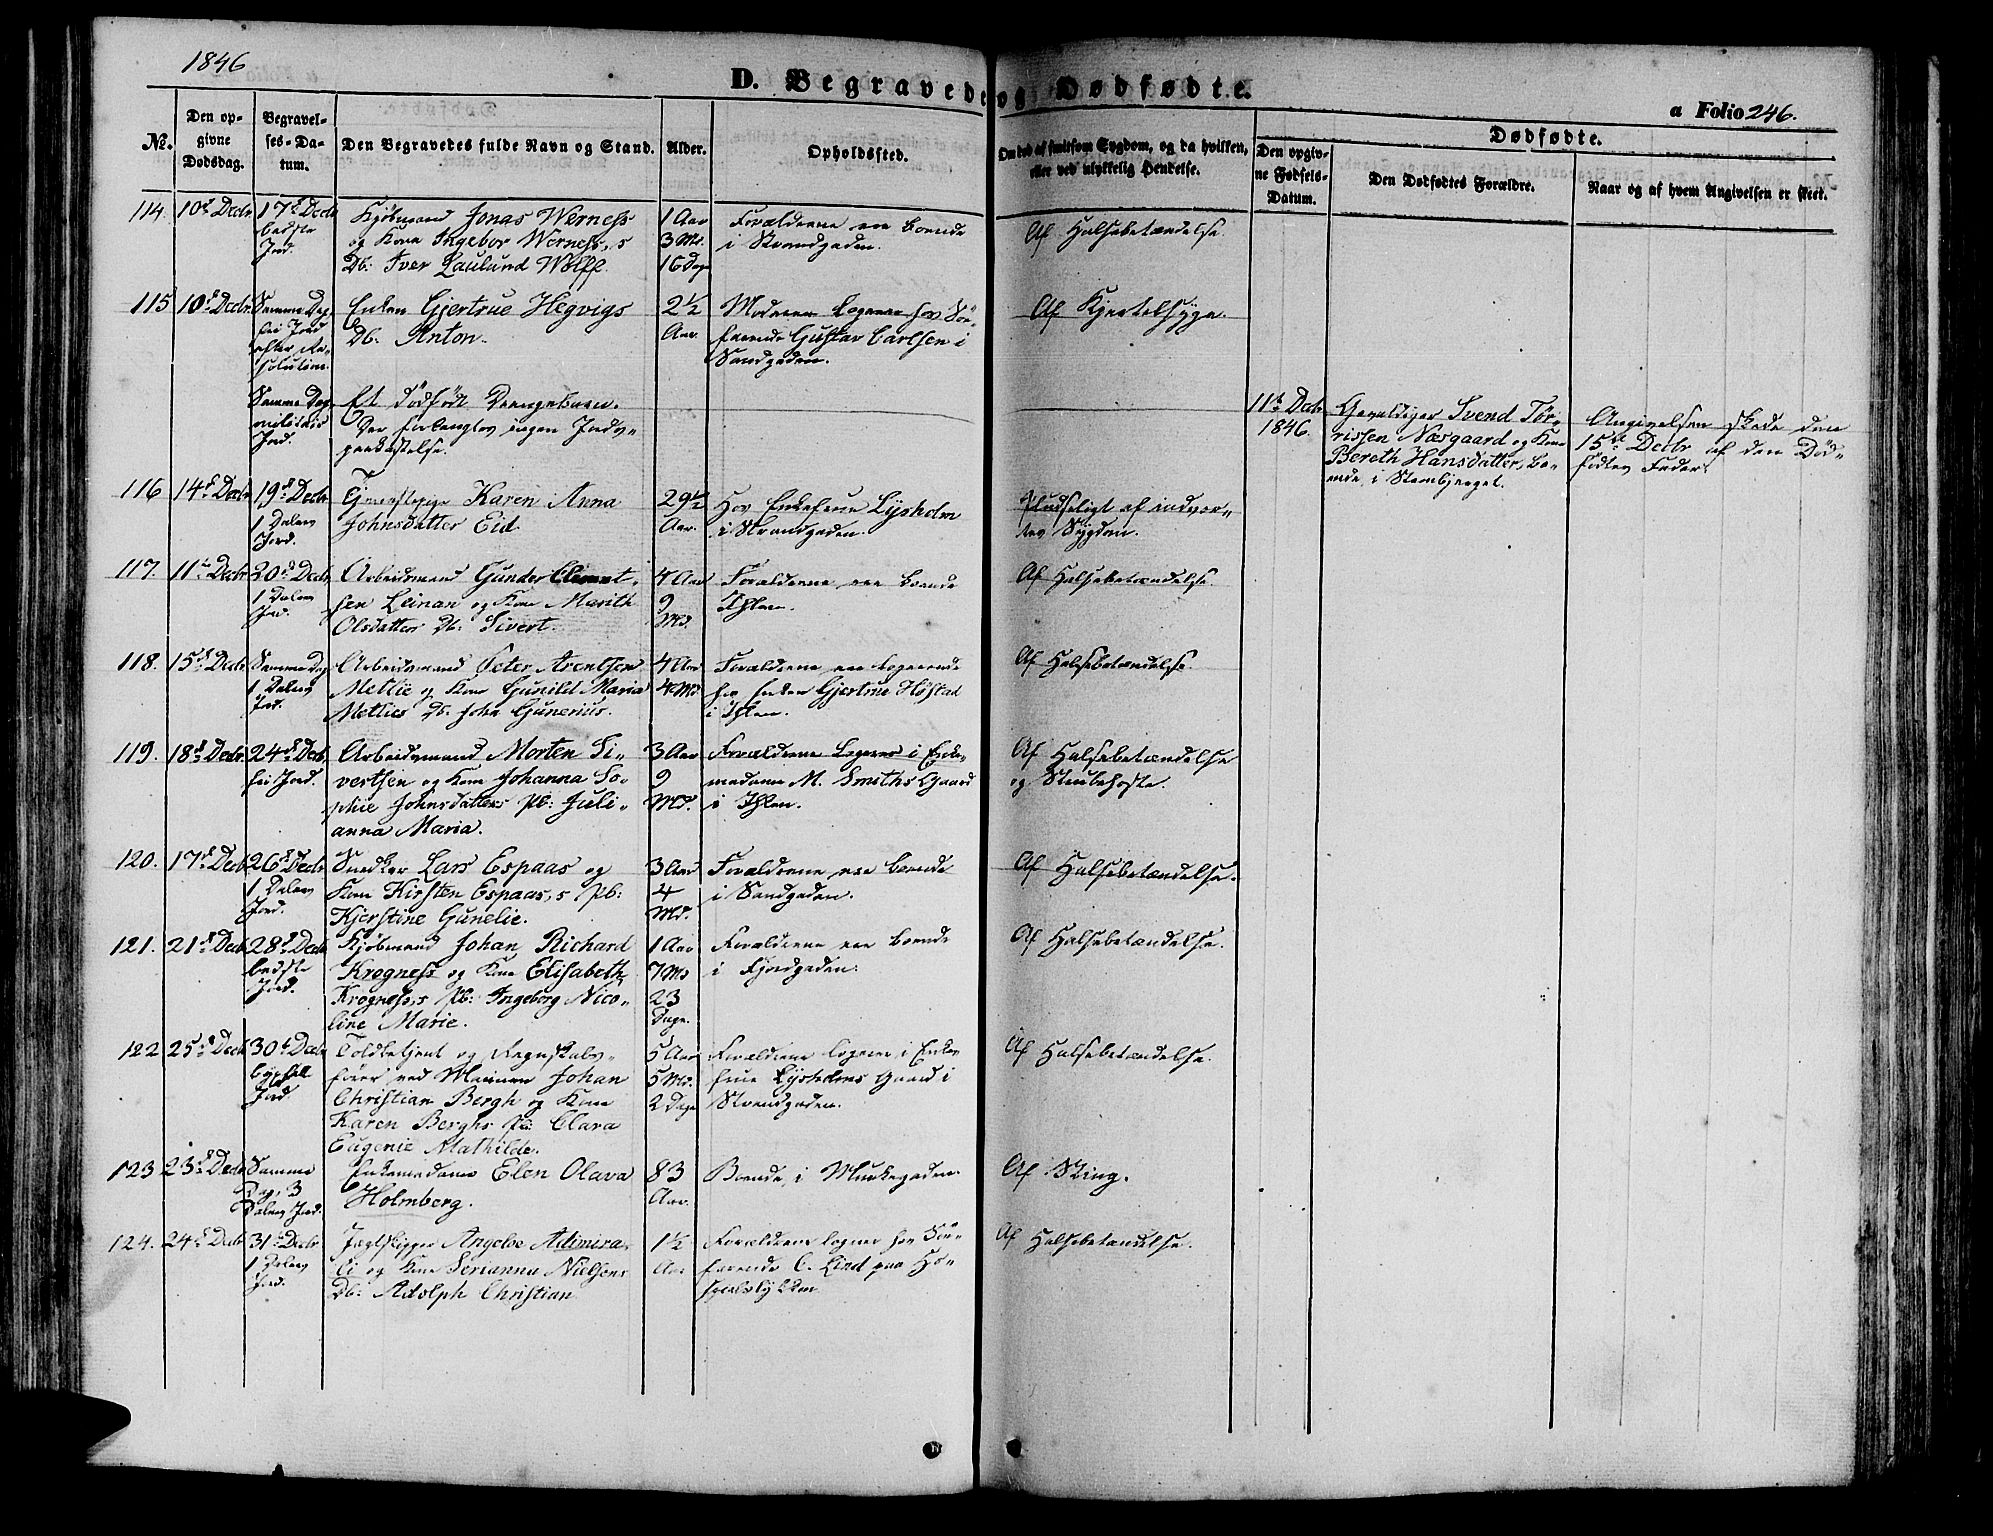 1846
D. Begravede og Dødfødte.
a Folio 246.
No.
Den opgivne Dødsdag.
Begravelses-Datum.
Den Begravedes fulde Navn og Stand.
Alder.
Opholdssted.
Om død af smitsom Sygdom, og da hvilken, eller ved ulykkelig Hendelse.
Dødfødte.
Den opgivne Fødsels-Datum.
Den Dødfødtes Forældre.
Naar og af hvem Angivelsen er skeet.
114. 10de Decbr. 17de Decbr bedste Jord.
Kjøbmand Jonas Werness
og Kone Ingebor Werness,s
Db: Iver Laulund Wolff.
1 Aar
3 Md.
16 Dage
Forældrene ere boende
i Strandgaden.
Af Halsebetændelse.
115 10de Decbr. Samme Dag
fri Jord
efter Re-
solution.
Enken Gjertrue Hegvigs
Db: Anton.
2½
Aar.
Moderen logerer hos Sø-
farende Gustav Carlsen i
Sandgaden.
Af Kjertelsyge.
Samme Dag
militair
Jord.
Et dödfödt Drengebarn.
Der forlanges ingen Jords-
paakastelse.
11te Decbr
1846.
Gevaldiger Svend Tør-
rissen Næsgaard og Kone
Bereth Hansdatter, bo-
ende i Steenbjerget.
Angivelsen skede den
15de Decbr af den Död-
födtes Fader.
116 14de Decbr. 19de Decbr.
1 Dalers
Jord.
Tjenestepige Karen Anna
Johnsdatter Eid.
29½
Aar.
Hos Enkefrue Lysholm
i Strandgaden.
Pludseligt af indvor-
tes Sygdom.
117. 11te Decbr 20de Decbr.
1 Dalers
Jord.
Arbeidsmand Gunder Clemet-
sen Leinan og Kone Marith
Olsdatters Db: Sivert.
4 Aar
9
Md.
Forældrene ere boende
Ihlen.
Af Halsebetændelse.
118. 15de Decbr. Samme Dag
1 Dalers
Jord.
Arbeidsmand Peter Arentsen
Metlie og Kone Gunild Maria
Metlies Db. John Gunerius.
4 Aar
4 Md.
Forældrene ere logerende
hos Enken Gjertrue Høstad
i Ihlen.
Af Halsebetændelse.
119. 18de Decbr. 24de Decbr.
fri Jord.
Arbeidsmand Morten Si-
vertsen og Kone Johanna So-
phie Johnsdatters Pb: Juli-
anna Maria.
3 Aar
9
Md.
Forældrene logerer i Enke-
madame M. Smiths Gaard
i Ihlen.
Af Halsebetændelse
og Strubehoste.
120. 17de Decbr. 26de Decbr.
1 Dalers
Jord.
Snedker Lars Espaas og
Kone Kirsten Espaas,s Pb:
Kjerstine Gunelie.
3 Aar
4
Md.
Forældrene ere boende
i Sandgaden.
Af Halsebetændelse.
121. 21de Decbr 28de Decbr
bedste
Jord.
Kjøbmand Johan Richard
Krogness og Kone Elisabeth
Krogness,s Pb: Ingeborg Nico-
line Marie.
1 Aar
7 Md
23
Dage.
Forældrene ere boende
i Fjordgaden.
Af Halsebetændelse.
122 25de Decbr 30te Decbr
Jord
Toldbetjent og Regnskabs-
fører ved Marinen Johan
Christian Bergh og Kone
Karen Berghs Pb: Clara
Eugenie Mathilde.
5 Aar
5 Md.
2 Dage
Forældrene logerer i Enke-
frue Lysholms Gaard i
Strandgaden.
Af Halsebetændelse.
123 23de Decbr Samme
Dag, 3
Dalers Jord.
Enkemadame Elen Olava
Holmberg.
83
Aar.
Boende i Munkegaden.
Af Sting.
124. 24de Decbr 31te Decbr
1 Dalers
Jord.
Jagtskipper Angeloe Adimira-
li og Kone Serianna Nielsens
Db: Adolph Christian
1½
Aar
Forældrene logerer hos Sö-
farende C. Lind paa Ho-
spitalslykken
Af Halsebetændelse.